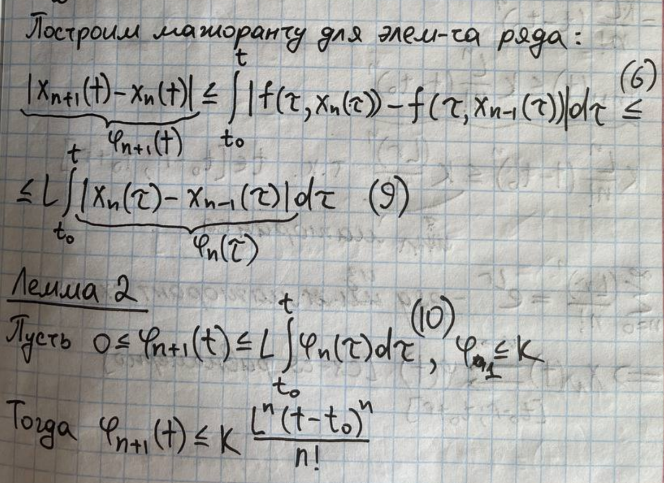 Построим мажоранту для элем-та ряда:
|x_{n+1}(t) - x_n(t)| ≤ ∫_{t_0}^{t} |f(τ, x_n(τ)) - f(τ, x_{n-1}(τ))|dτ ≤ (6)
φ_{n+1}(t)
≤ L ∫_{t_0}^{t} |x_n(τ) - x_{n-1}(τ)|dτ (9)
φ_n(τ)
Лемма 2
Пусть 0 ≤ φ_{n+1}(t) ≤ L ∫_{t_0}^{t} φ_n(τ)dτ (10), φ_1 ≤ K
Тогда φ_{n+1}(t) ≤ K \frac{L^n (t-t_0)^n}{n!}